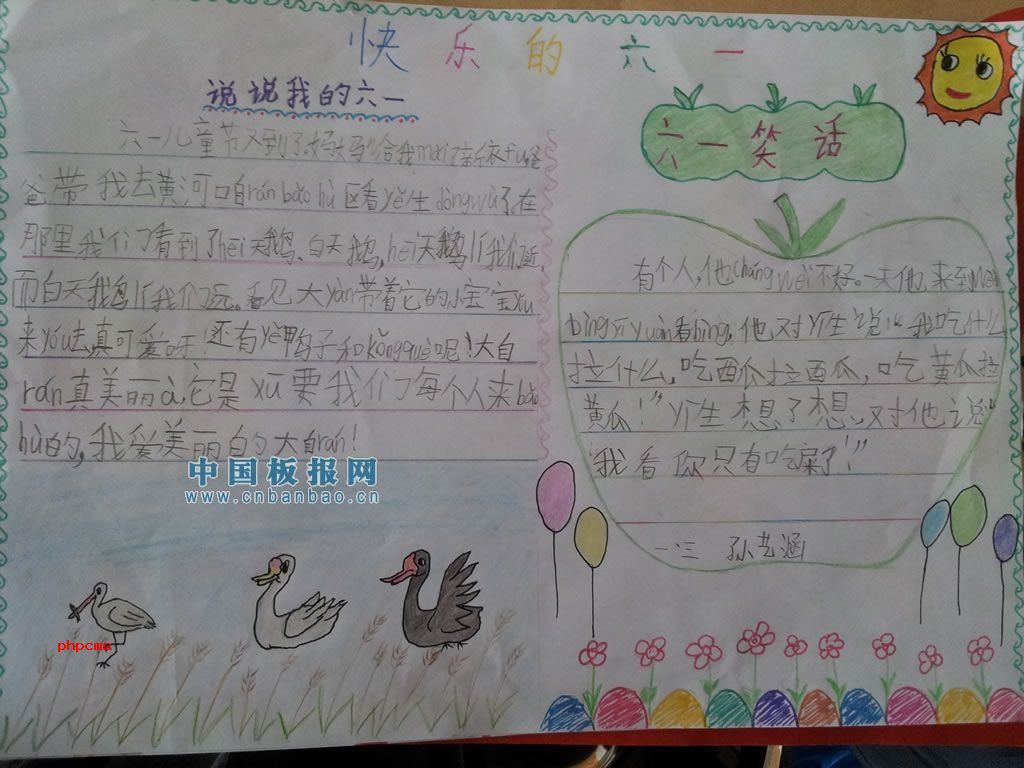 快乐的六一
说说我的六一
六一儿童节又到了,妈妈给我mǎi了新衣fu,爸
爸带我去黄河口自rán bǎo hù区看yě生dòng wù了,在
那里我们看到了hēi天鹅、白天鹅,hēi天鹅lí我们近,
而白天鹅lí我们远。看见大yàn带着它的小宝宝yóu
来yóu去真可爱呀!还有yě鸭子和kǒng què呢!大自
rán真美丽à,它是xū要我们每个人来bǎo
hù的,我爱美丽的大自rán!
中国板报网
www.cnbanbao.cn
phpcms
六一笑话
有个人,他cháng wèi不好。一天他,来到wèi
bìng yī yuàn看bìng,他对yī生说:“我吃什么
拉什么,吃西瓜拉西瓜,吃黄瓜拉
黄瓜!”yī生想了想,对他说:“
我看你只有吃屎了!”
一.三 孙艺涵